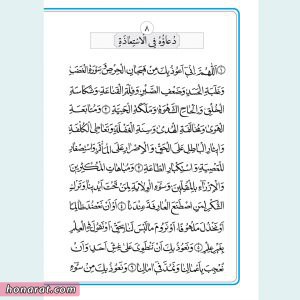 ٨
دُعَاؤُهُ فِي الْاِسْتِعَاذَةِ
① اَللّٰهُمَّ اِنّى اَعُوذُ بِكَ مِنْ هَيَجَانِ الْحِرْصِ وَ سَوْرَةِ الْغَضَبِ
وَغَلَبَةِ الْحَسَدِ وَضَعْفِ الصَّبْرِ وَقِلَّةِ الْقَنَاعَةِ وَشَكَاسَةِ
الْخُلُقِ وَاِلْحَاحِ الشَّهْوَةِ وَمَلَكَةِ الْحَمِيَّةِ ② وَمُتَابَعَةِ
الْهَوٰى وَمُخَالَفَةِ الْهُدٰى وَسِنَةِ الْغَفْلَةِ وَتَعَاطِى الْكُلْفَةِ
وَاِيثَارِ الْبَاطِلِ عَلَى الْحَقِّ وَالْاِصْرَارِ عَلَى الْمَأْثَمِ وَاسْتِصْغَارِ
الْمَعْصِيَةِ وَاسْتِكْبَارِ الطَّاعَةِ ③ وَمُبَاهَاتِ الْمُكْثِرِينَ
وَالْاِزْرَآءِ بِالْمُقِلِّينَ وَسُوٓءِ الْوِلَايَةِ لِمَنْ تَحْتَ اَيْدِينَا وَتَرْكِ
الشُّكْرِ لِمَنِ اصْطَنَعَ الْعَارِفَةَ عِنْدَنَا ④ اَوْ اَنْ نَعْضُدَ ظَالِمًا
اَوْ نَخْذُلَ مَلْهُوفًا اَوْ نَرُومَ مَا لَيْسَ لَنَا بِحَقٍّ اَوْ نَقُولَ فِى الْعِلْمِ
بِغَيْرِ عِلْمٍ ⑤ وَنَعُوذُ بِكَ اَنْ نَنْطَوِىَ عَلٰى غِشِّ اَحَدٍ وَاَنْ
نُعْجِبَ بِاَعْمَالِنَا وَنَمُدَّ فٓى اٰمَالِنَا ⑥ وَنَعُوذُ بِكَ مِنْ سُوٓءِ
honarat.com